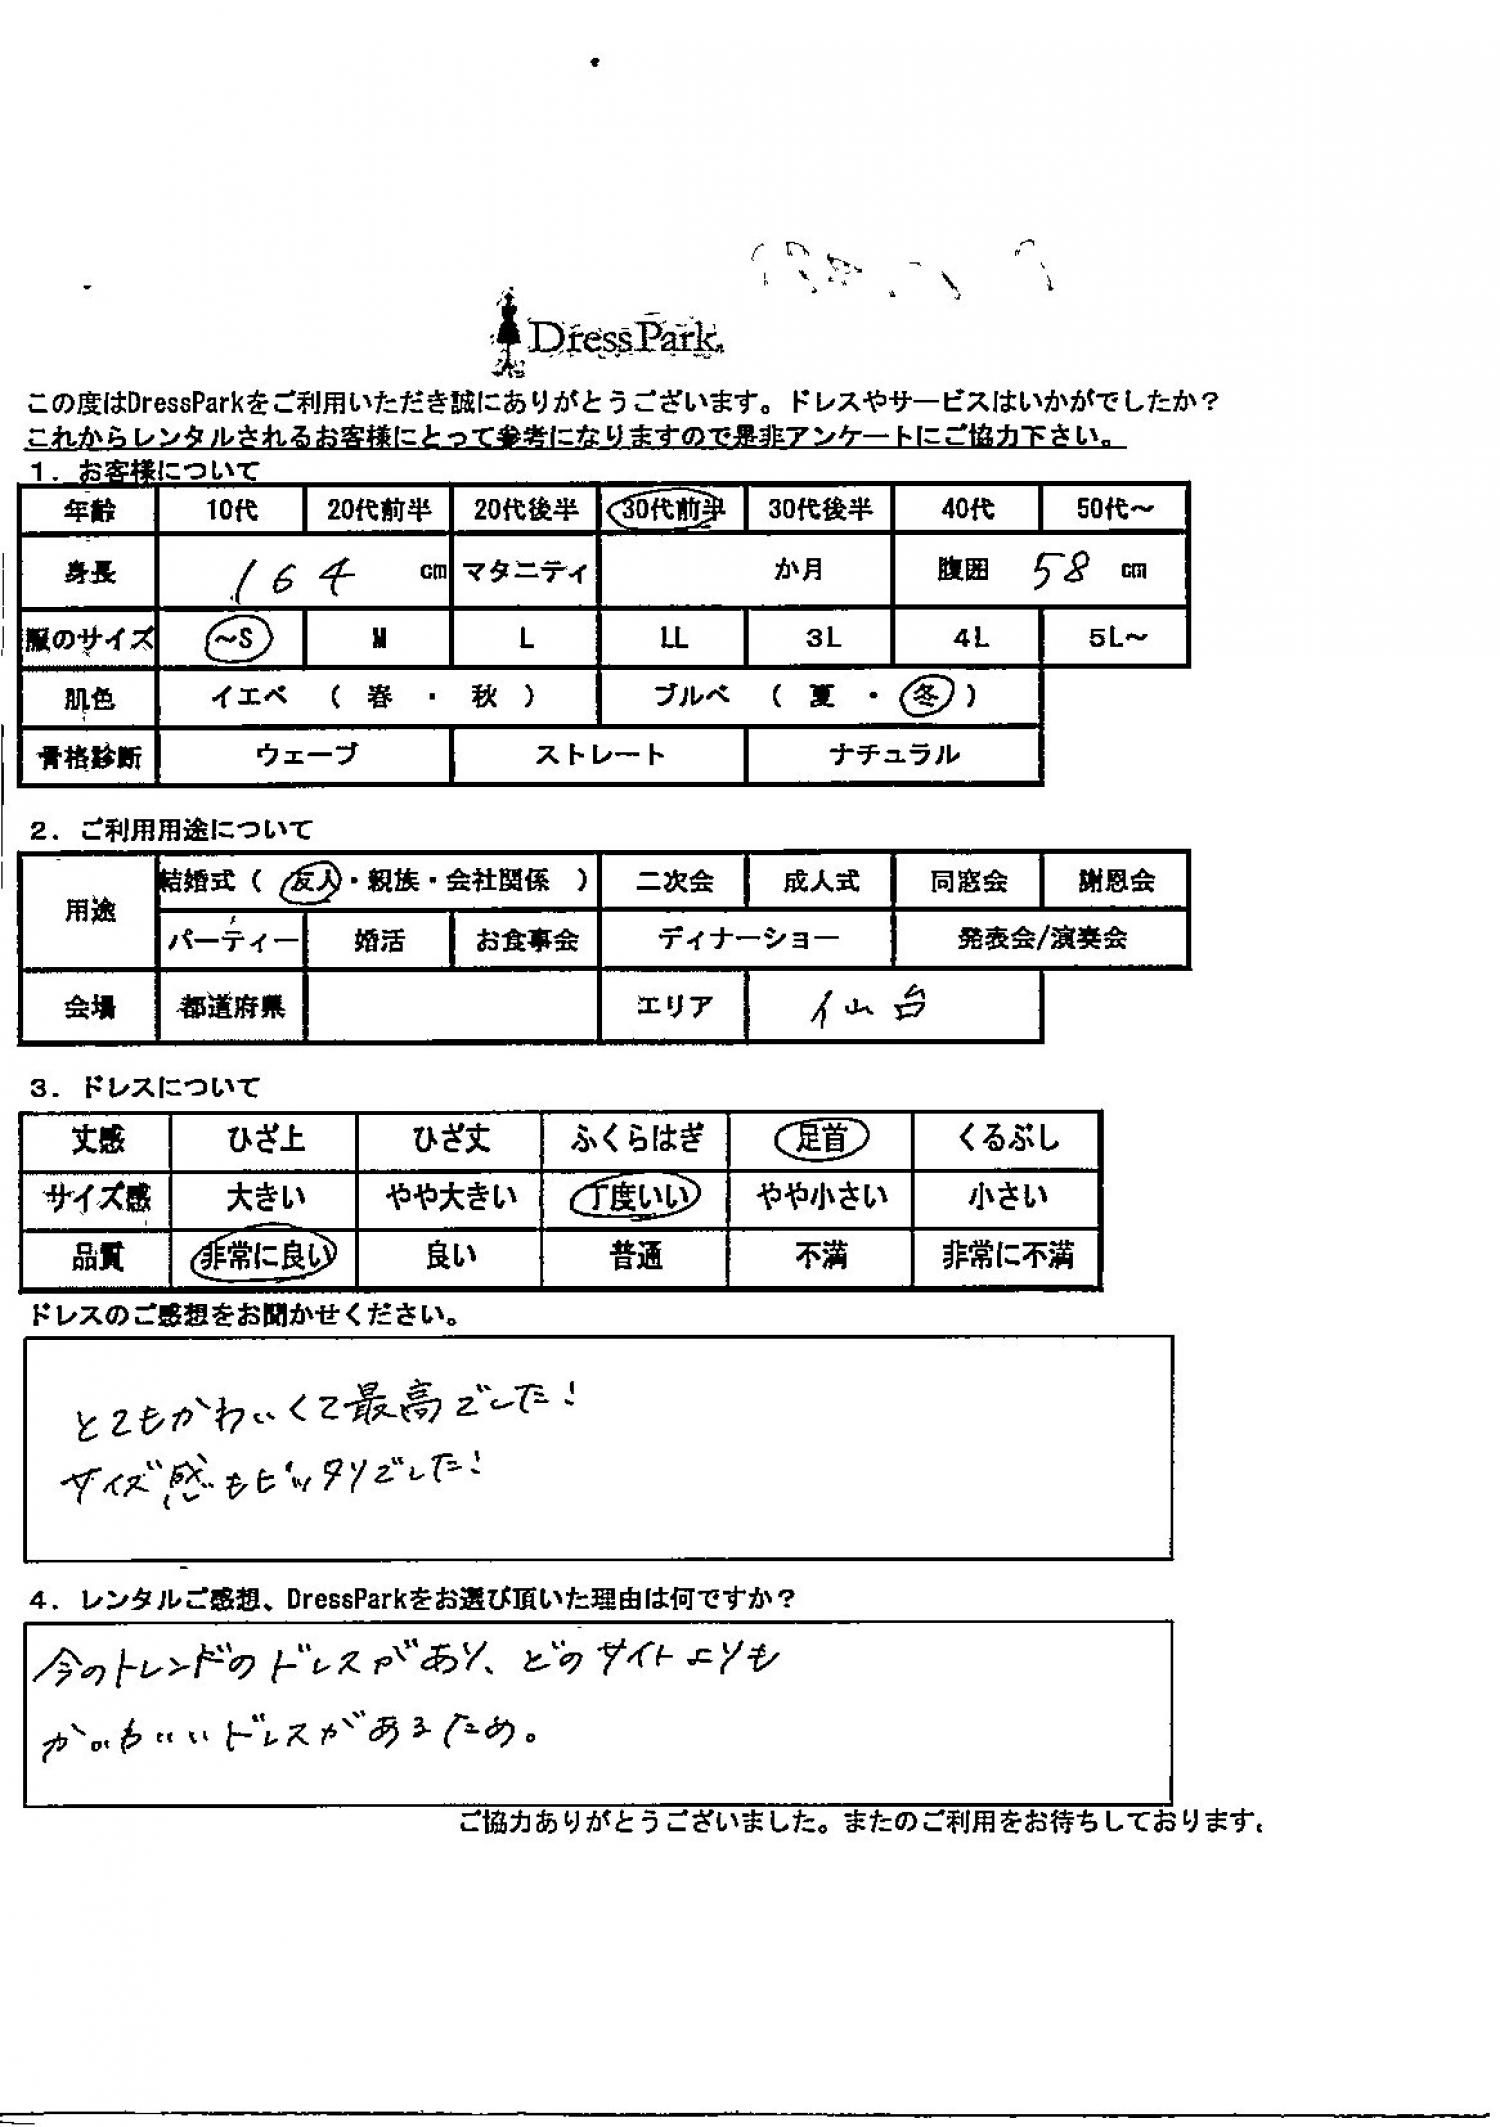 DressPark
この度はDressParkをご利用いただき誠にありがとうございます。ドレスやサービスはいかがでしたか？
これからレンタルされるお客様にとって参考になりますので是非アンケートにご協力下さい。
１．お客様について
年齢 10代 20代前半 20代後半 30代前半 30代後半 40代 50代～
身長 164 cm マタニティ か月 腹囲 58 cm
服のサイズ ～S M L LL 3L 4L 5L～
肌色 イエベ （ 春 ・ 秋 ） ブルベ （ 夏 ・ 冬 ）
骨格診断 ウェーブ ストレート ナチュラル
２．ご利用用途について
用途 結婚式（ 友人・親族・会社関係 ） 二次会 成人式 同窓会 謝恩会
パーティー 婚活 お食事会 ディナーショー 発表会/演奏会
会場 都道府県 エリア 仙台
３．ドレスについて
丈感 ひざ上 ひざ丈 ふくらはぎ 足首 くるぶし
サイズ感 大きい やや大きい 丁度いい やや小さい 小さい
品質 非常に良い 良い 普通 不満 非常に不満
ドレスのご感想をお聞かせください。
とてもかわいくて最高でした！
サイズ感もピッタリでした！
４．レンタルご感想、DressParkをお選び頂いた理由は何ですか？
今のトレンドのドレスがあり、どのサイトよりも
かわいいドレスがあるため。
ご協力ありがとうございました。またのご利用をお待ちしております。